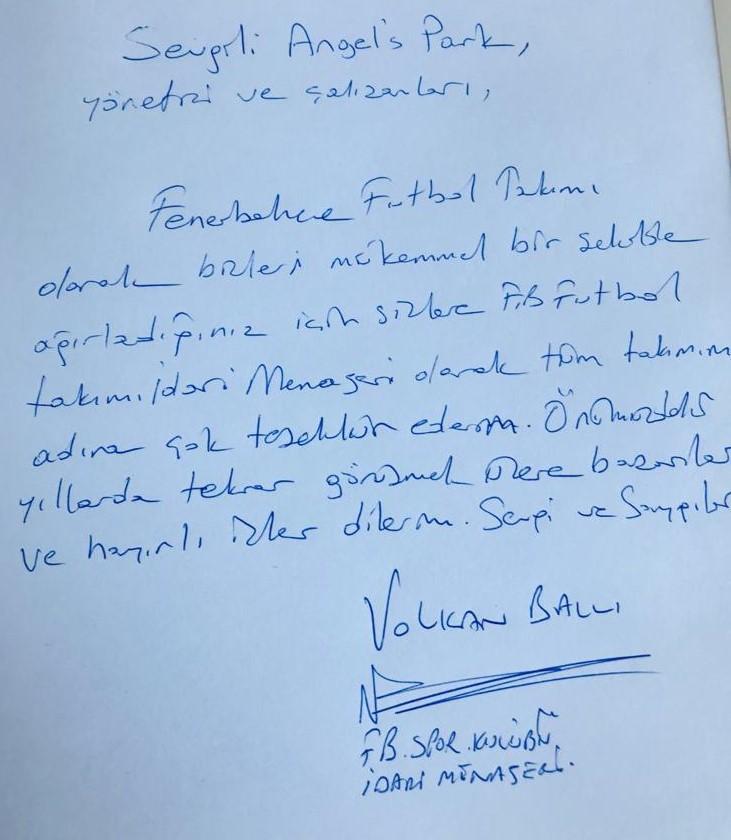 Sevgili Angel's Park,
yönetici ve çalışanları,
Fenerbahçe Futbol Takımı
olarak bizleri mükemmel bir şekilde
ağırladığınız için sizlere F.B Futbol
takımı İdari Menajeri olarak tüm takımım
adına çok teşekkür ederim. Önümüzdeki
yıllarda tekrar görüşmek üzere başarılar
ve hayırlı işler dilerim. Sevgi ve Saygılar
VOLKAN BALLI
FB. SPOR. KULÜBÜ
İDARİ MENAJERİ.